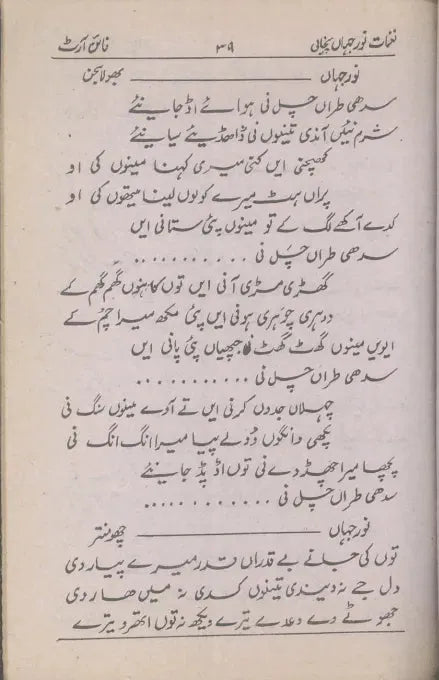 نغمات نور جہاں پنجابی ۳۹ فائن آرٹ
نور جہاں ـــــــــــــــــ بھولا سجن
سدھی طراں چل نی ہوائے اڈ جانیئے
شرم نئیں آندی تینوں نی ڈاھڈیئے سیانیئے
کھچنی ایں کنی میری کہنا مینوں کی او
پراں ہٹ میرے کولوں لینا میتھوں کی او
کدے آکھے لگ کے تو مینوں پئی ستانی ایں
سدھی طراں چل نی . . . . . . . . . . . .
گھڑی مڑی آنی ایں توں کاہنوں گھم گھم کے
دوہری چوہری ہونی ایں پئی مکھ میرا چم کے
ایویں مینوں گھٹ گھٹ جپھیاں پئی پانی ایں
سدھی طراں چل نی . . . . . . . . . . . .
چہلاں جدوں کرنی ایں تے آوے مینوں سنگ نی
پکھی وانگوں ڈولے پیا میرا انگ انگ نی
پچھا میرا چھڈ دے نی توں اڈ پڈ جانیئے
سدھی طراں چل نی . . . . . . . . . . . .
نور جہاں ـــــــــــــــــ چھومنتر
توں کی جانے بے قدراں قدر میرے پیار دی
دل جے نہ دیندی تینوں کدی نہ میں ھار دی
جھوٹے دے وعدے تیرے ویکھ نہ توں اتھرو تیرے